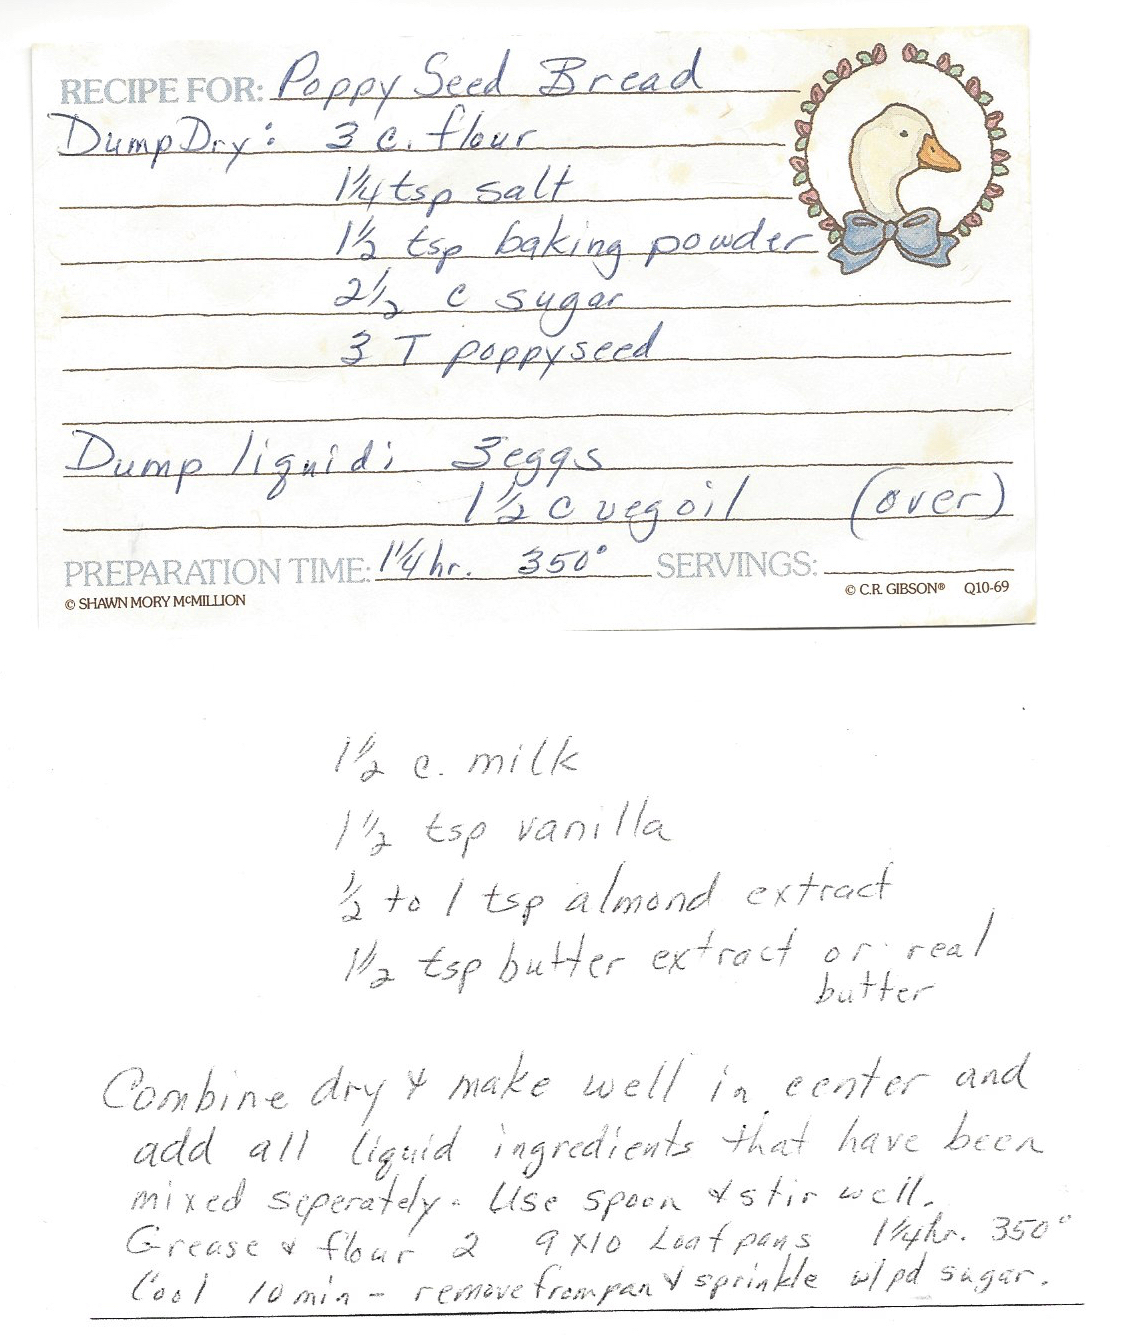 RECIPE FOR: Poppy Seed Bread
Dump Dry: 3 c. flour
1 1/4 tsp salt
1 1/2 tsp baking powder
2 1/2 c sugar
3 T poppyseed
Dump liquid: 3 eggs
1 1/2 c veg oil (over)
PREPARATION TIME: 1 1/4 hr. 350° SERVINGS:
© SHAWN MORY McMILLION © C.R. GIBSON® Q10-69
1 1/2 c. milk
1 1/2 tsp vanilla
1/2 to 1 tsp almond extract
1 1/2 tsp butter extract or real
butter
Combine dry & make well in center and
add all liquid ingredients that have been
mixed seperately. Use spoon & stir well.
Grease & flour 2 9x10 Loaf pans 1 1/4 hr. 350°
Cool 10 min - remove from pan & sprinkle w/ pd sugar.